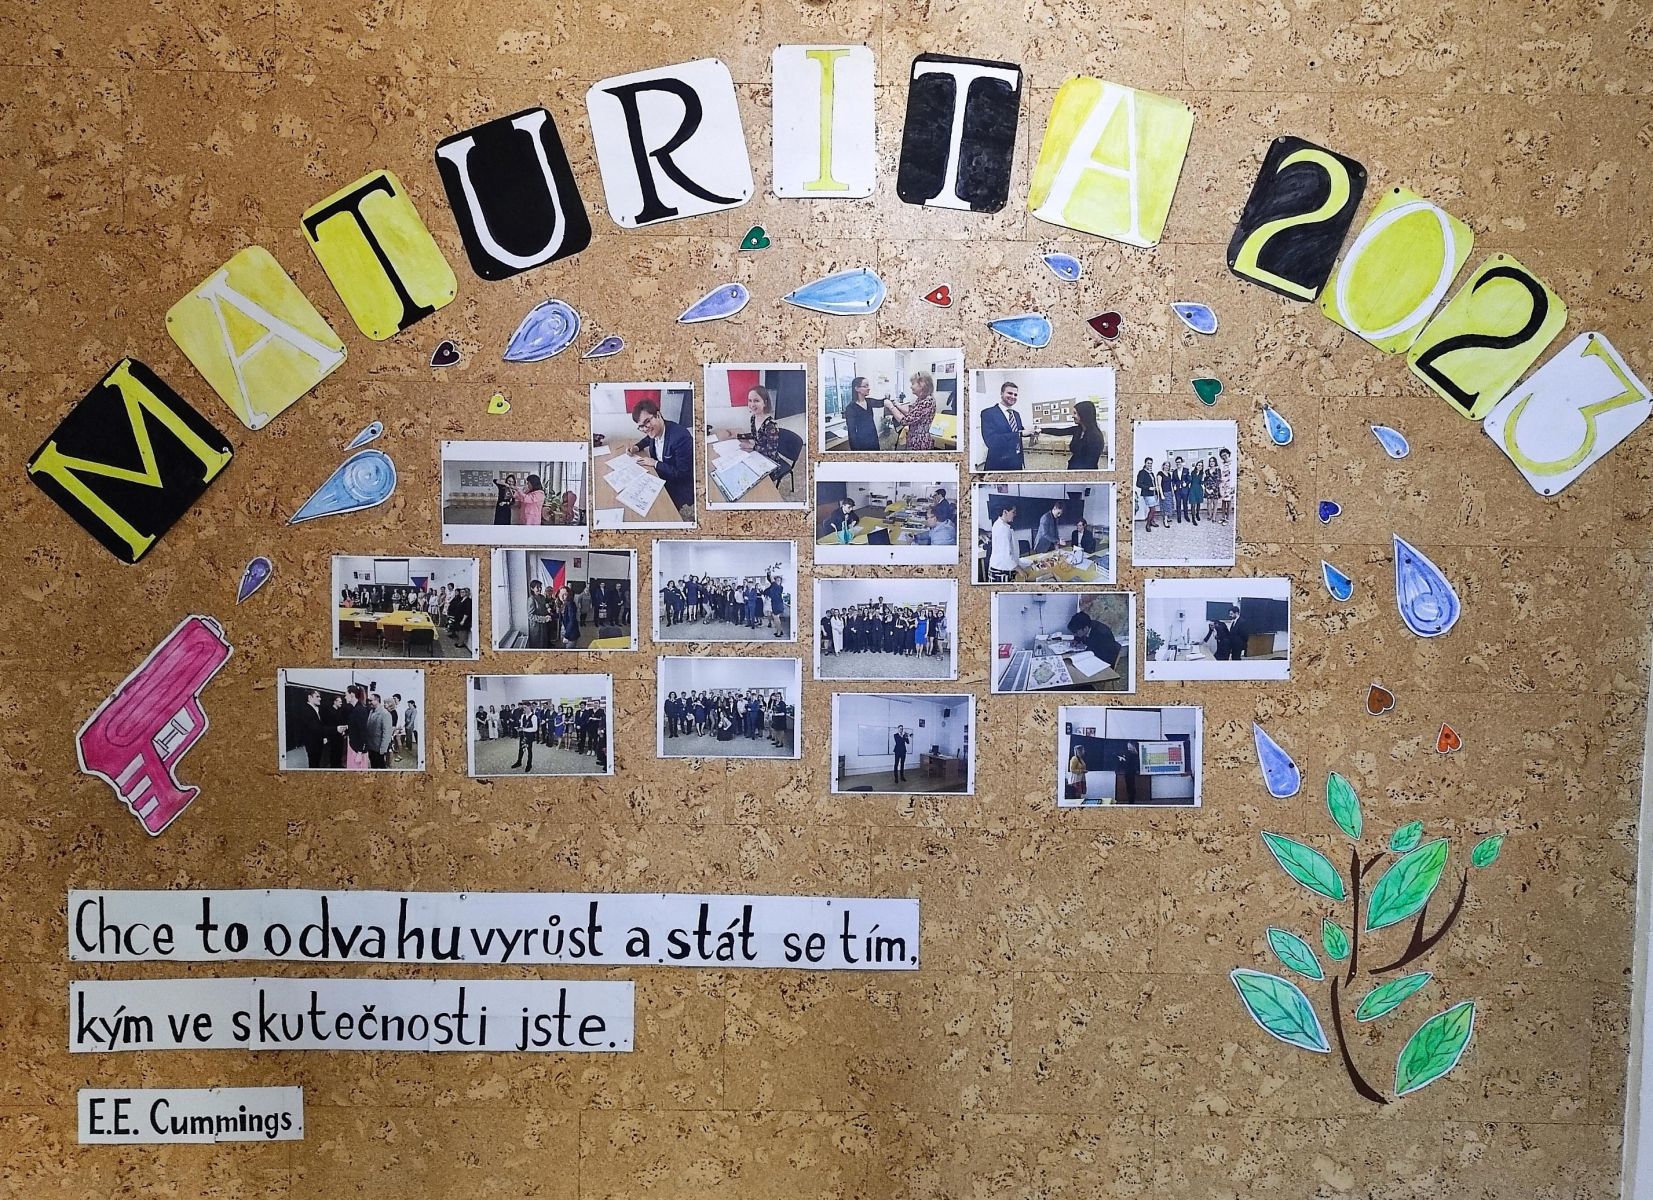 MATURITA 2023
Chce to odvahu vyrůst a stát se tím,
kým ve skutečnosti jste.
E.E. Cummings